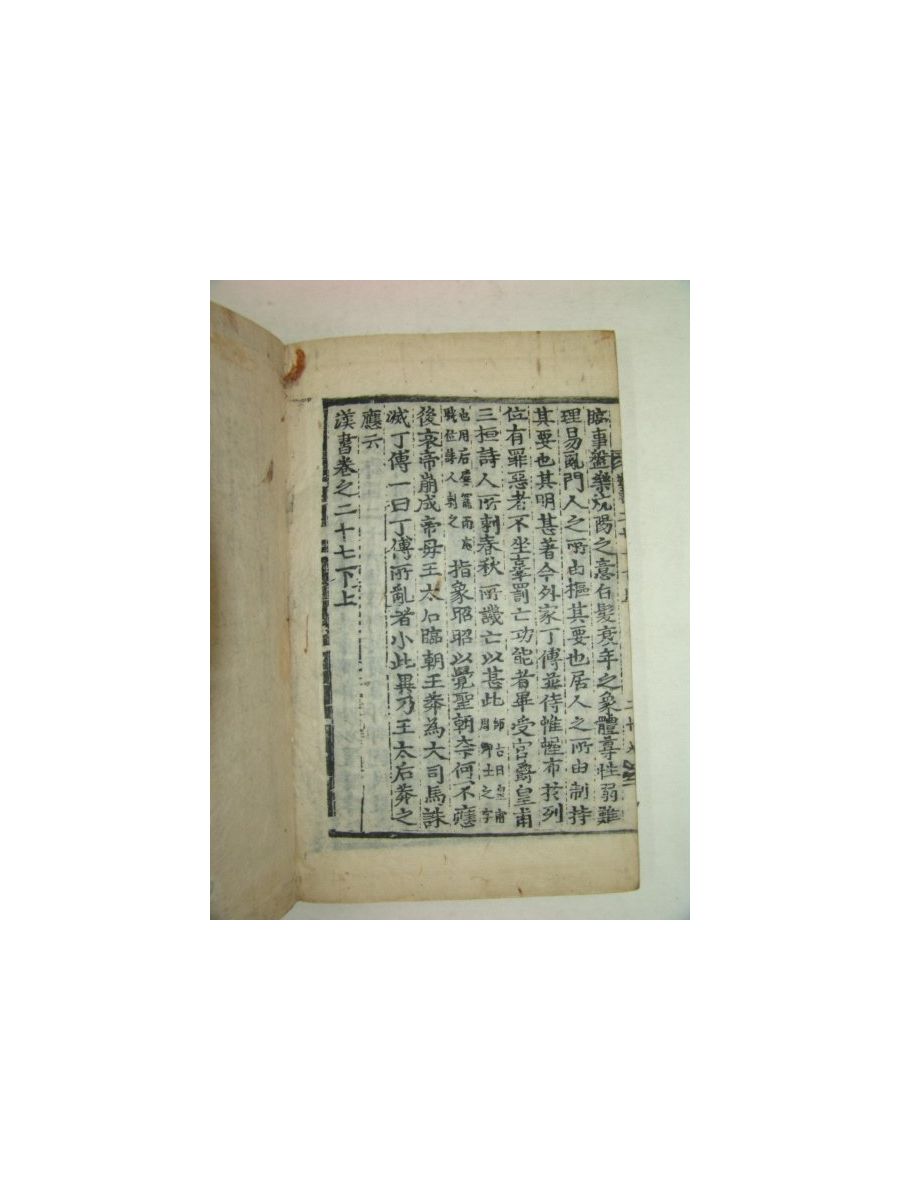 臨事盤樂炕陽之意白髮衰年之象體尊性弱難
理易亂門人之所由樞其要也居人之所由制持
其要也其明甚著今外家丁傅並侍帷幄布於列
位有罪惡者不坐辜罰亡功能者畢受官爵皇甫
三桓詩人所刺春秋所譏亡以甚此師古曰皇甫周卿士之字
也用后寵而處職位詩人刺之指象昭昭以覺聖朝奈何不應
後哀帝崩成帝母王太后臨朝王莽為大司馬誅
滅丁傅一曰丁傅所亂者小此異乃王太后莽之
應云
漢書卷之二十七下上